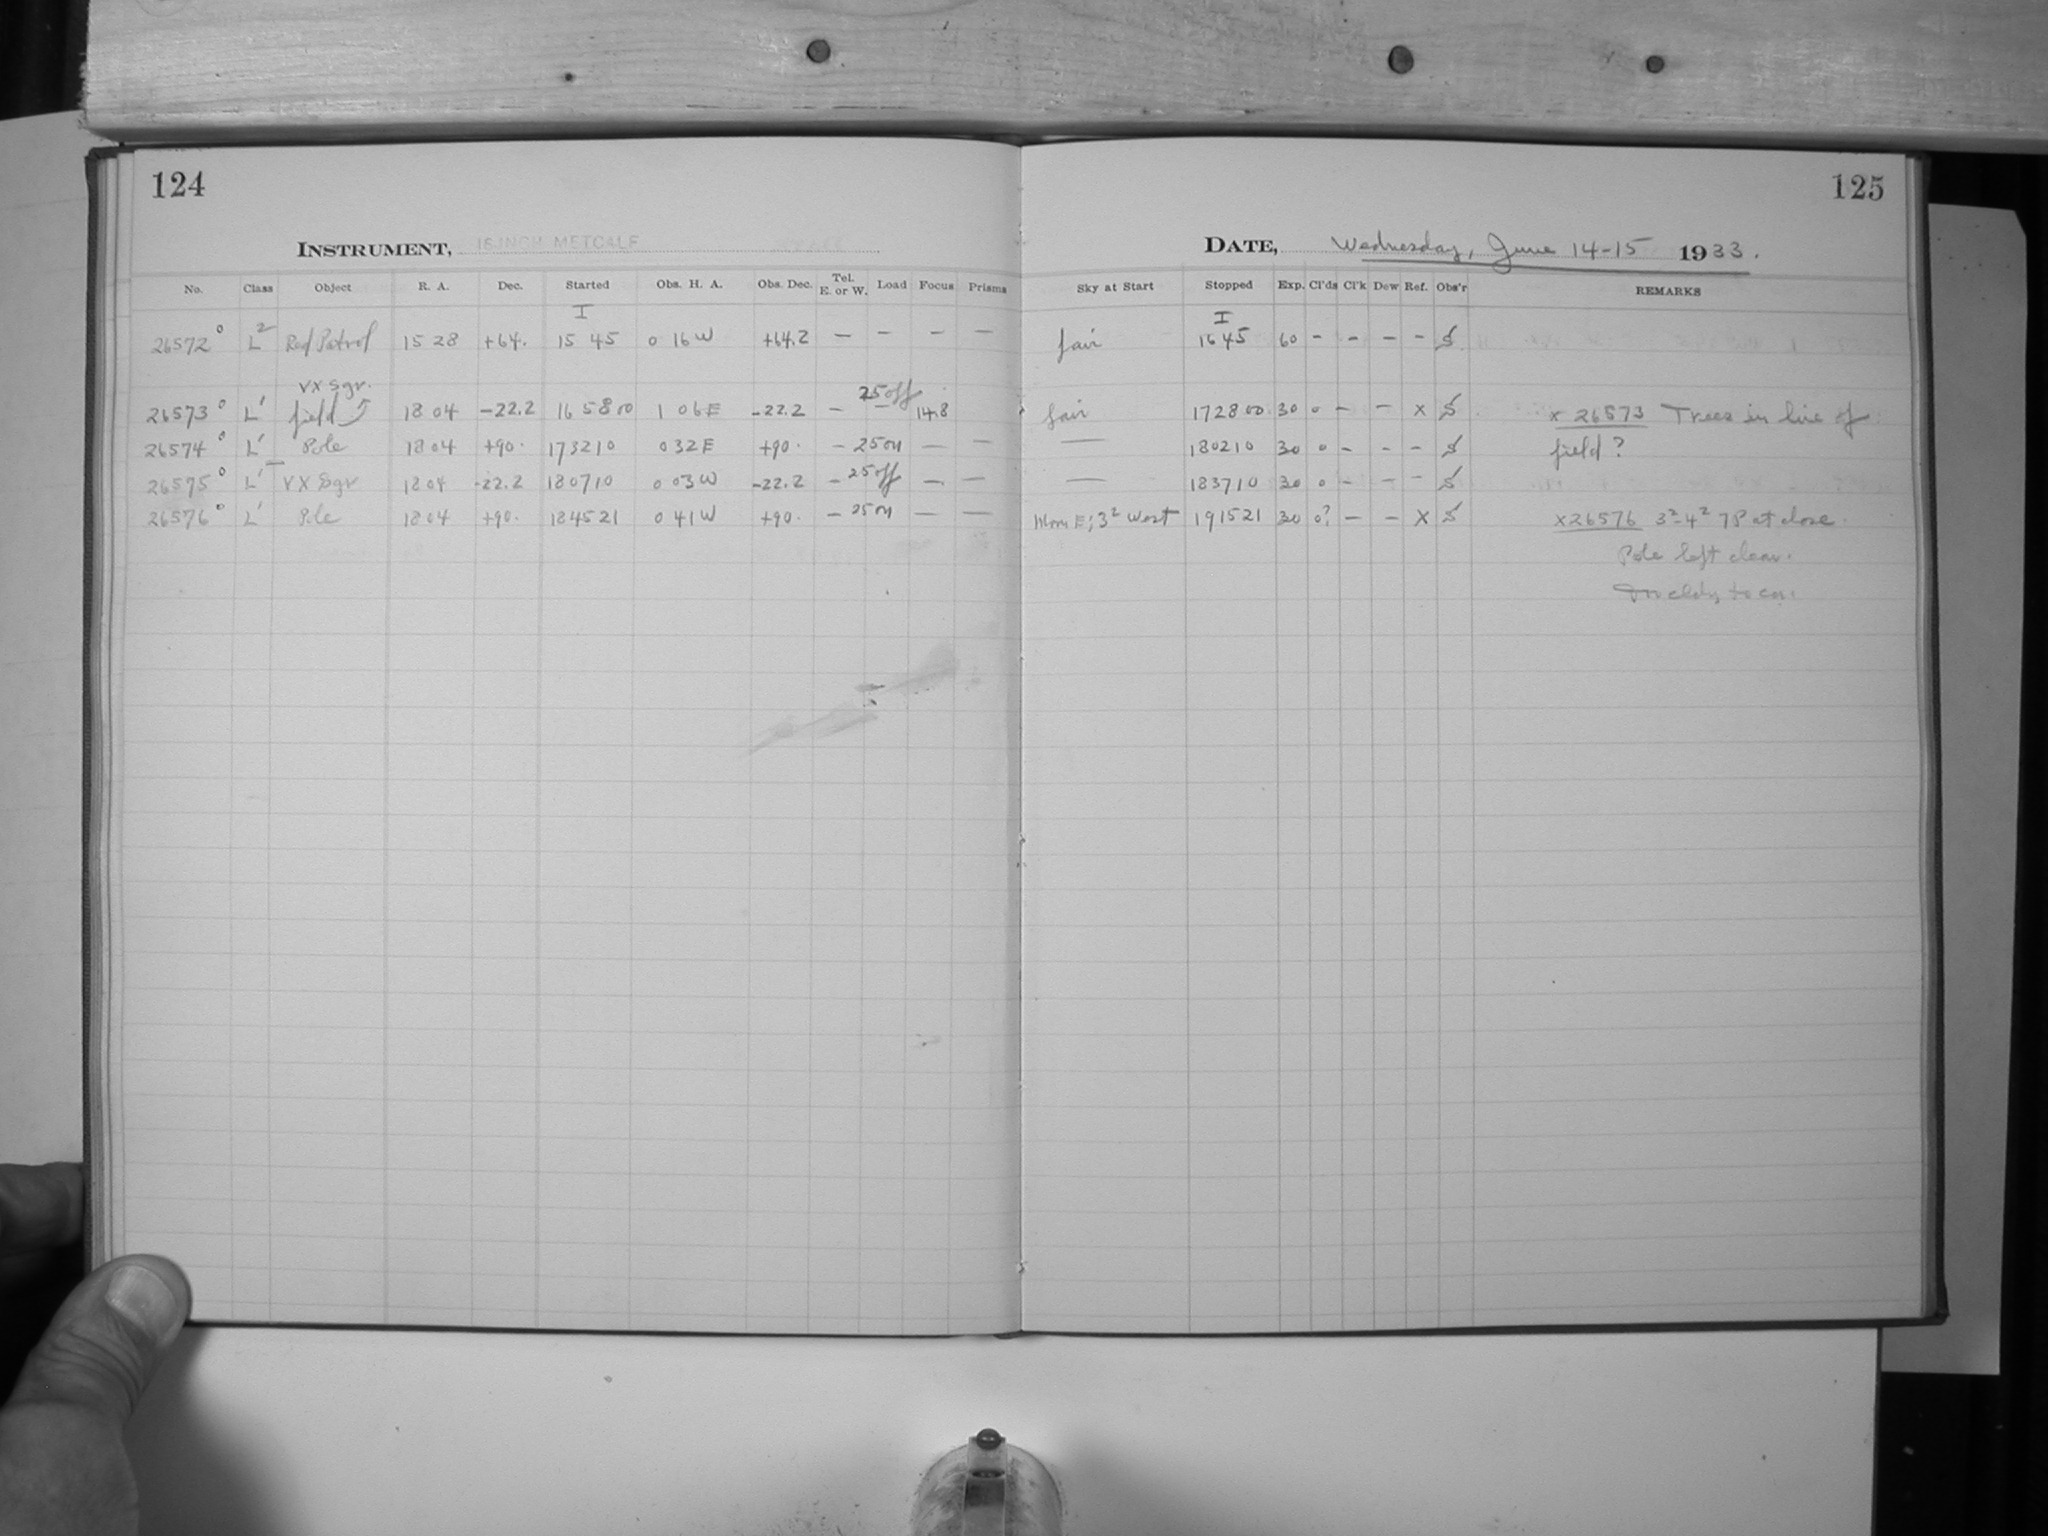 124
125
INSTRUMENT, 16 INCH METCALF
DATE, Wednesday, June 14-15 1933.
No. Class Object R. A. Dec. Started Obs. H. A. Obs. Dec. Tel. E. or W. Load Focus Prisms Sky at Start Stopped Exp. Cl'ds Cl'k Dew Ref. Obs'r REMARKS
I I
26572 0 L 2 Red Patrol 15 28 +64. 15 45 0 16 W +64.2 — — — — fair 16 45 60 - - - - S
VX Sgr. 25 off
26573 0 L' field 18 04 -22.2 16 58 00 1 06 E -22.2 — — 14.8 fair 17 28 00 30 0 - - x S x 26573 Trees in line of
26574 0 L' Pole 18 04 +90. 17 32 10 0 32 E +90. - 25 on — — — 18 02 10 30 0 - - - S field?
26575 0 L' VX Sgr 18 04 -22.2 18 07 10 0 03 W -22.2 - 25 off — — — 18 37 10 30 0 - - - S
26576 0 L' Pole 18 04 +90. 18 45 21 0 41 W +90. - 25 on — — Moon E; 3² West 19 15 21 30 0? — — X S x26576 3²-4² 7P at close.
Pole left clear.